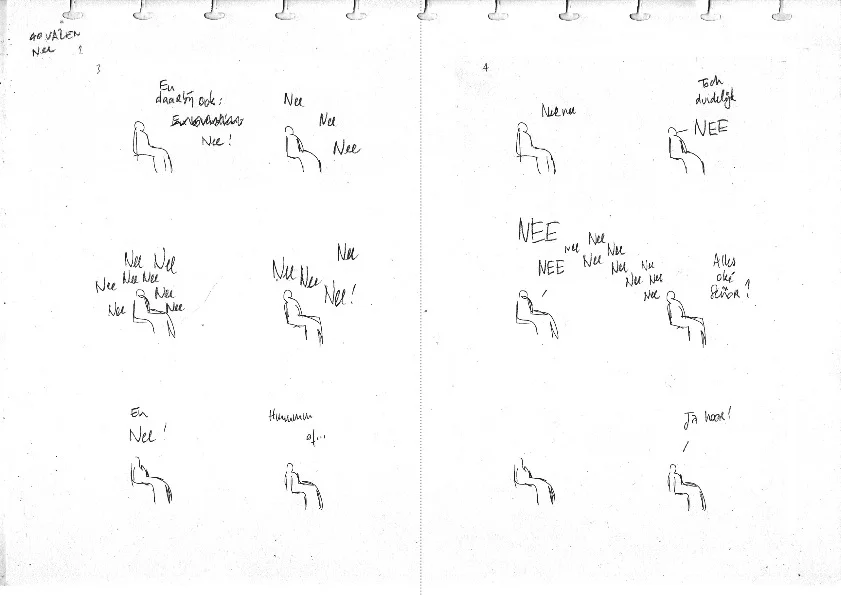 40 VALEN
Nee !
3
En
daarbij ook:
Nee!
Nee
Nee
Nee
Nee Nee
Nee Nee Nee
Nee
Nee Nee
Nee
Nee Nee
Nee!
En
Nee!
Hmmmmm
of...
4
Nee nee
Toch
duidelijk
NEE
NEE
nee Nee
Nee
NEE Nee
Nee Nee
Nee Nee
Nee
Alles
oké
SEÑOR?
Ja hoor!